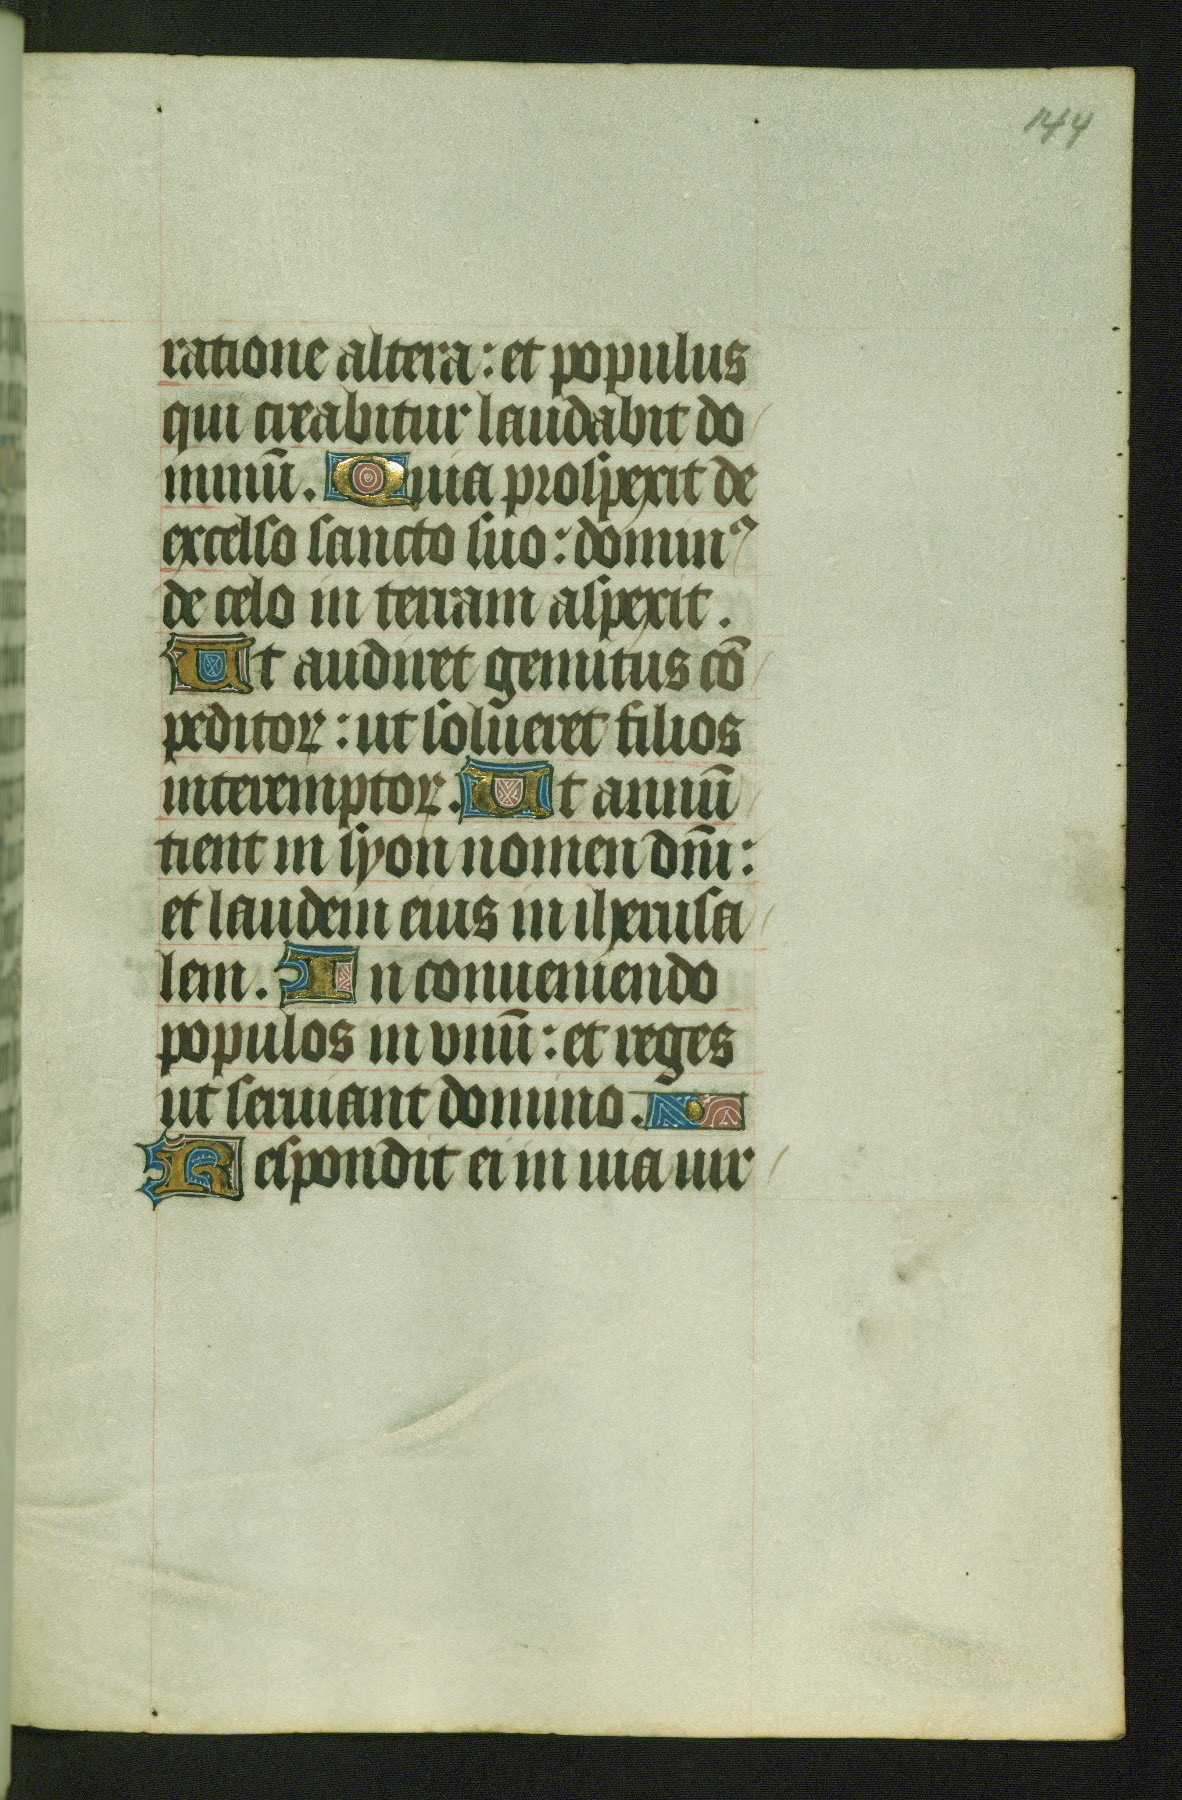 144
ratione altera : et populus
qui creabitur laudabit do
minū . Quia prospexit de
excelso sancto suo : dominꝰ
de celo in terram aspexit .
Ut audiret gemitus cō
peditoꝝ : ut solueret filios
interemptoꝝ . Ut annū
tient in syon nomen dn̄i :
et laudem eius in iherusa
lem . In conueniendo
populos in vnū : et reges
ut seruiant domino .
Respondit ei in uia uir